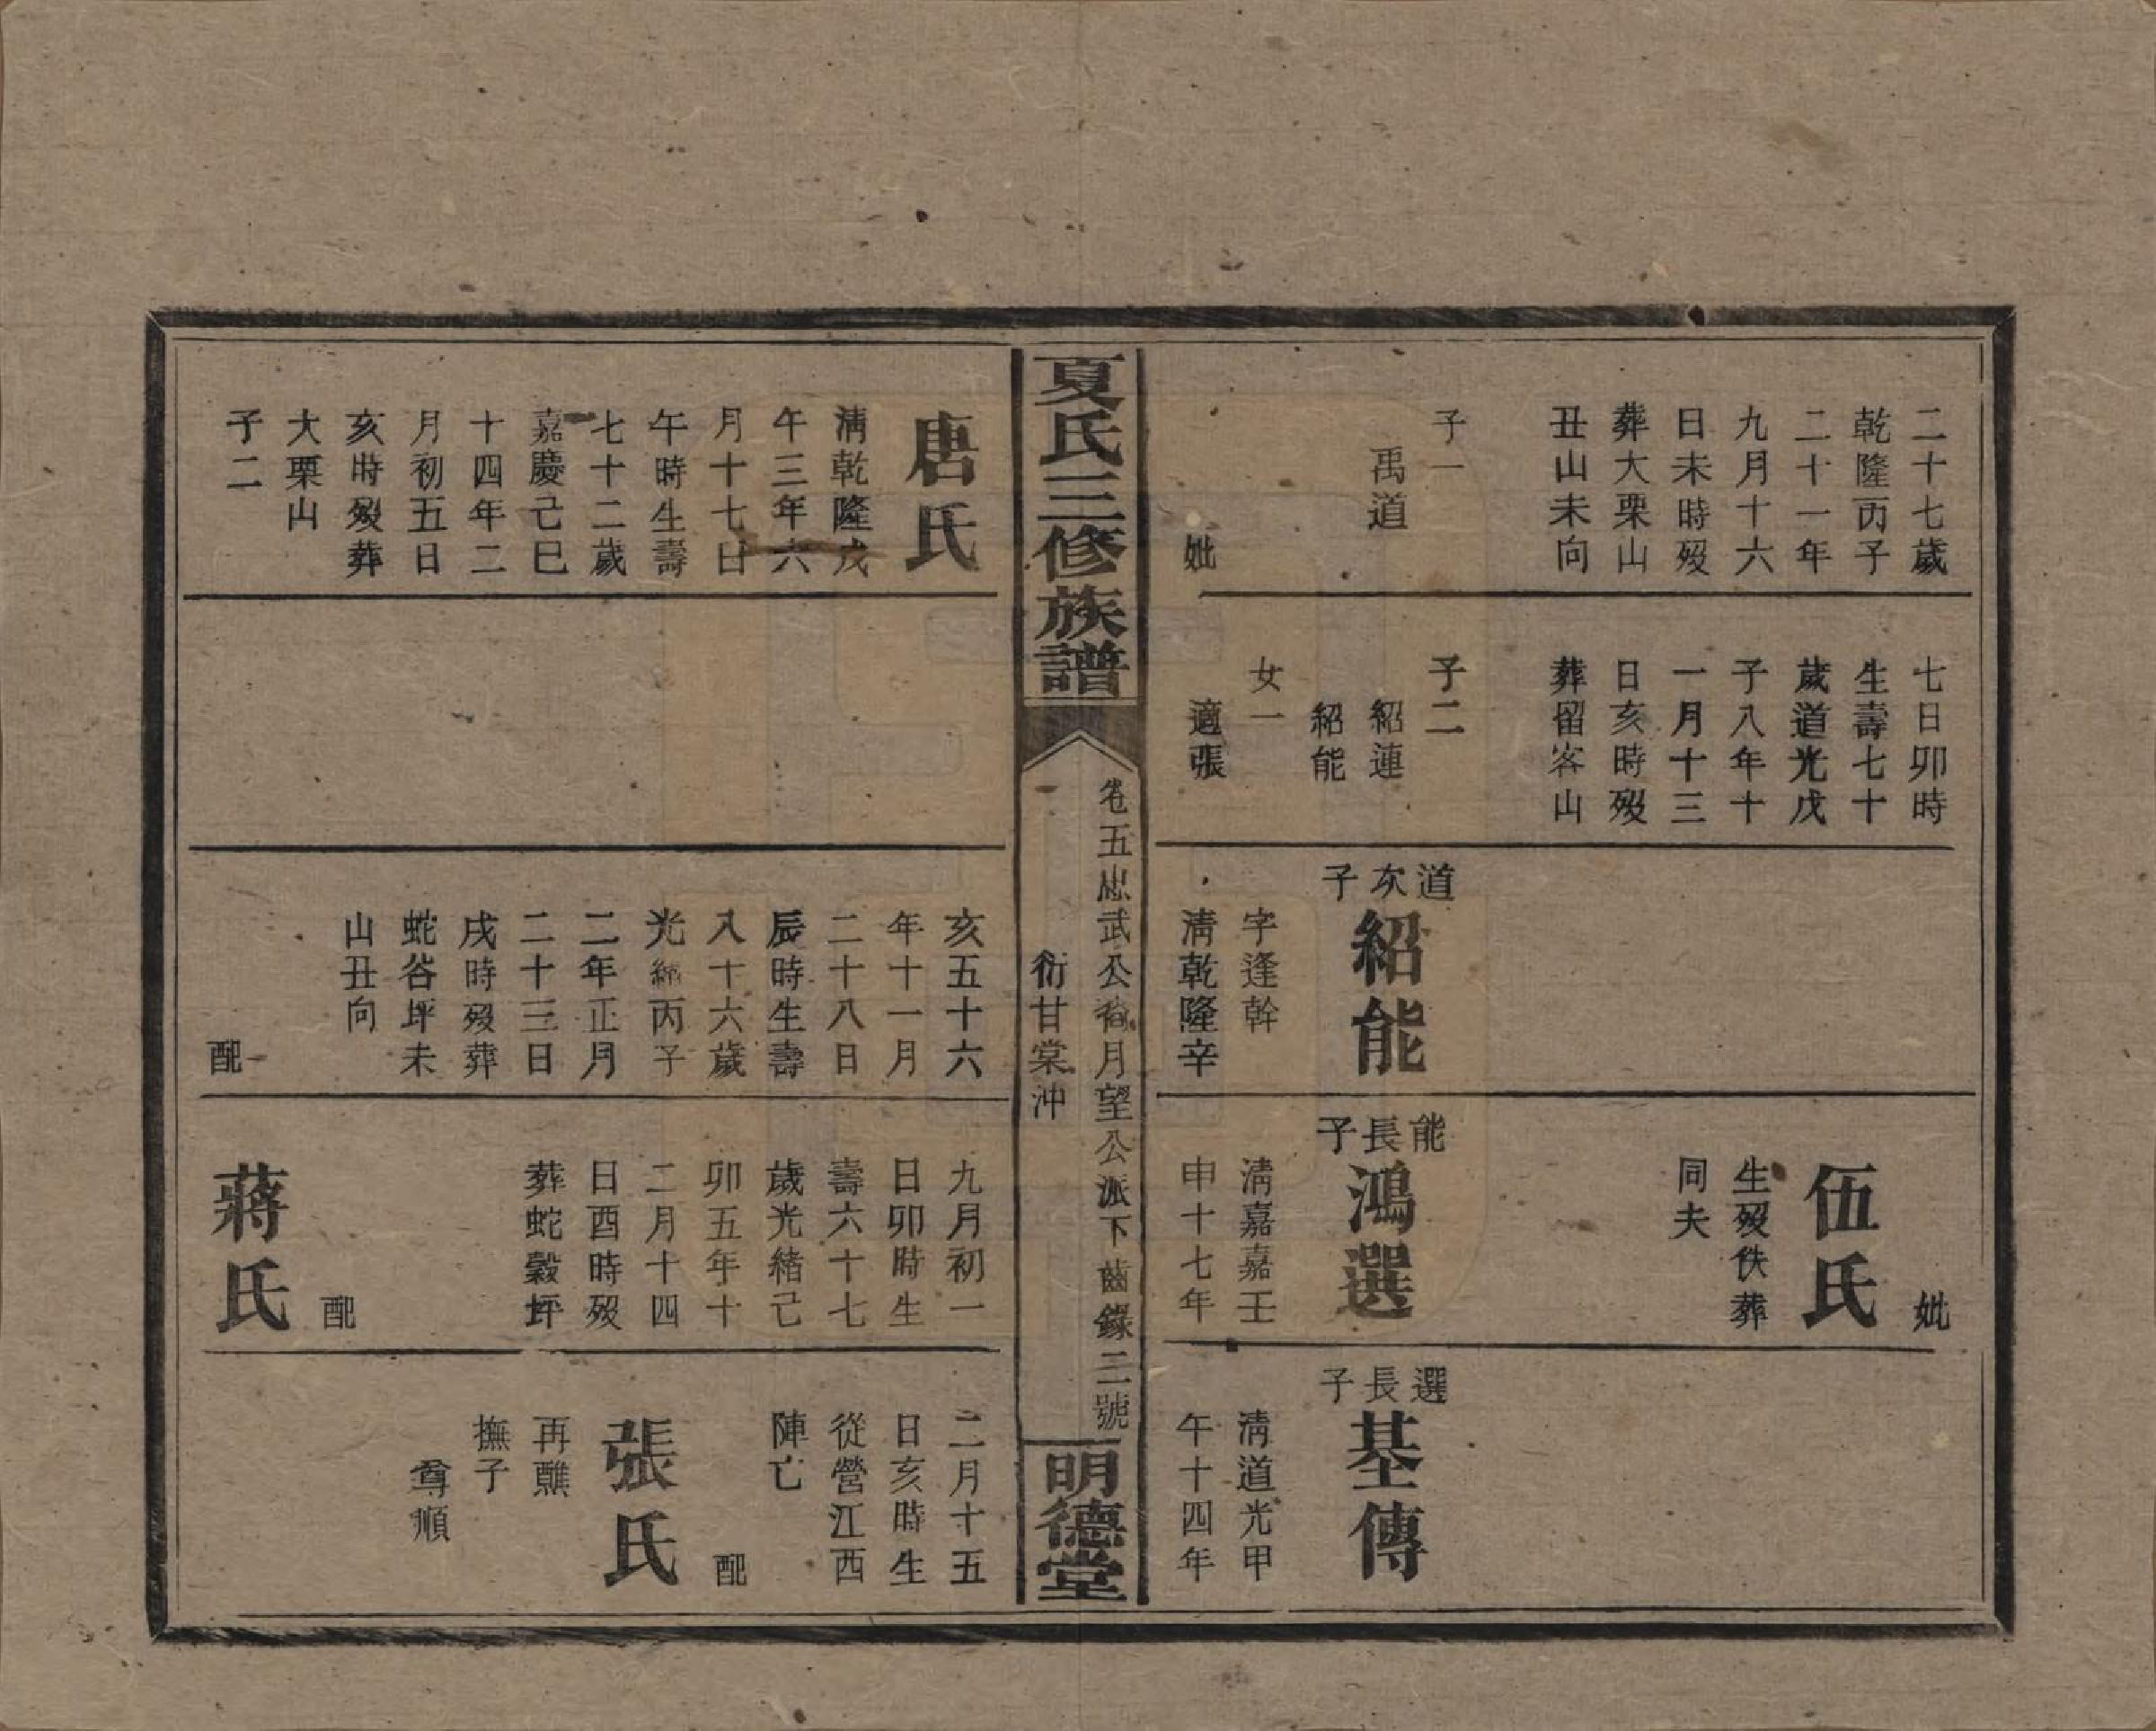 二十七歲
乾隆丙子
二十一年
九月十六
日未時歿
葬大栗山
丑山未向
子一
禹道
妣
七日卯時
生壽七十
歲道光戊
子八年十
一月十三
日亥時歿
葬留客山
子二
紹連
紹能
女一
適張
道次子
紹能
字逢幹
清乾隆辛
妣
伍氏
生歿佚葬
同夫
能長子
鴻選
清嘉嘉壬
申十七年
選長子
基傳
清道光甲
午十四年
夏氏三修族譜
卷五忠武公裔月望公派下齒錄三號
衍甘棠沖
明德堂
唐氏
清乾隆戊
午三年六
月十七日
午時生壽
七十二歲
嘉慶己巳
十四年二
月初五日
亥時歿葬
大栗山
子二
亥五十六
年十一月
二十八日
辰時生壽
八十六歲
光緒丙子
二年正月
二十三日
戌時歿葬
蛇谷坪未
山丑向
配
九月初一
日卯時生
壽六十七
歲光緒己
卯五年十
二月十四
日酉時歿
葬蛇穀坪
配
蔣氏
二月十五
日亥時生
從營江西
陣亡
配
張氏
再醮
撫子
尊順